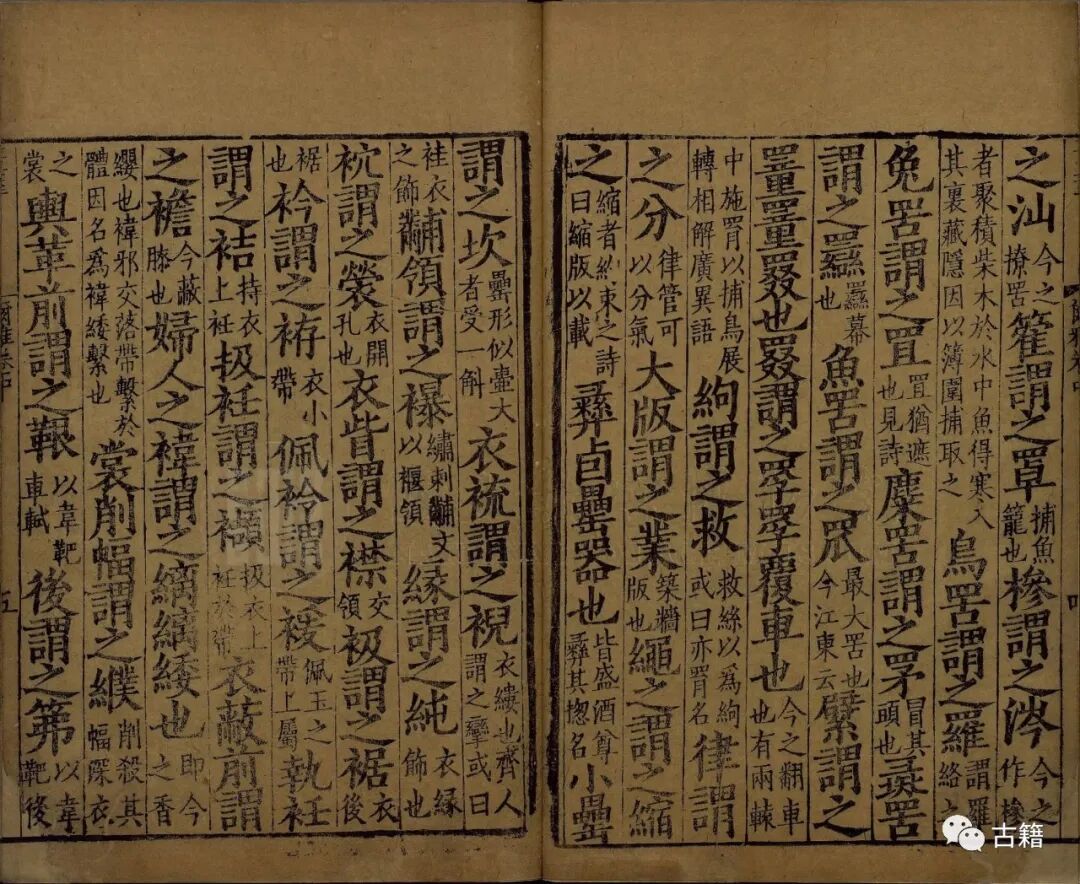 之汕今之撩罟篧謂之罩捕魚籠也槮謂之涔今之作槮
者聚積柴木於水中魚得寒入其裏藏隱因以簿圍捕取之鳥罟謂之羅謂羅絡之
兔罟謂之罝罝猶遮也見詩麋罟謂之罞冒其頭也彘罟
謂之羉羉幕也魚罟謂之罛最大罟也今江東云繴謂之
罿罿罬也罬謂之罦罦覆車也今之翻車也有兩轅
中施罥以捕鳥展轉相解廣異語絇謂之救救絲以為絇或曰亦罥名律謂
之分律管可以分氣大版謂之業築牆版也繩之謂之縮
之縮者約束之詩曰縮版以載彝卣罍器也皆盛酒尊彝其揔名小罍
謂之坎罍形似壺大者受一斛衣䘱謂之祝衣縷也齊人謂之攣或曰
袿衣之飾黼領謂之襮繡刺黼文以褗領緣謂之純衣緣飾也
袕謂之褮衣開孔也衣眥謂之襟交領衱謂之裾衣後
裾也衿謂之袸衣小帶佩衿謂之褑佩玉之帶上屬執衽
謂之袺持衣上衽扱衽謂之襭扱衣上衽於帶衣蔽前謂
之襜今蔽膝也婦人之褘謂之縭縭緌也即今之香
纓也褘邪交落帶繫於體因名為褘緌繫也裳削幅謂之纀削殺其幅深衣
之裳輿革前謂之鞎以韋靶車軾後謂之笰以韋靶後
古籍